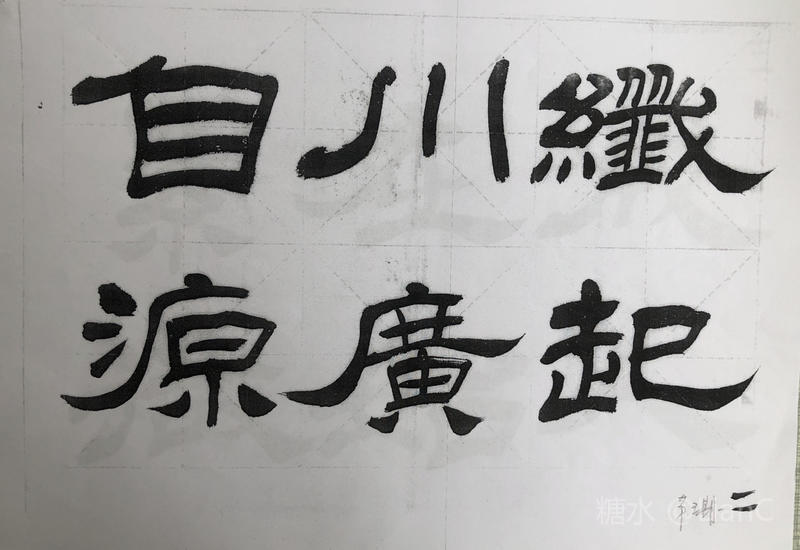 纖起
川廣
自源
二
糖水